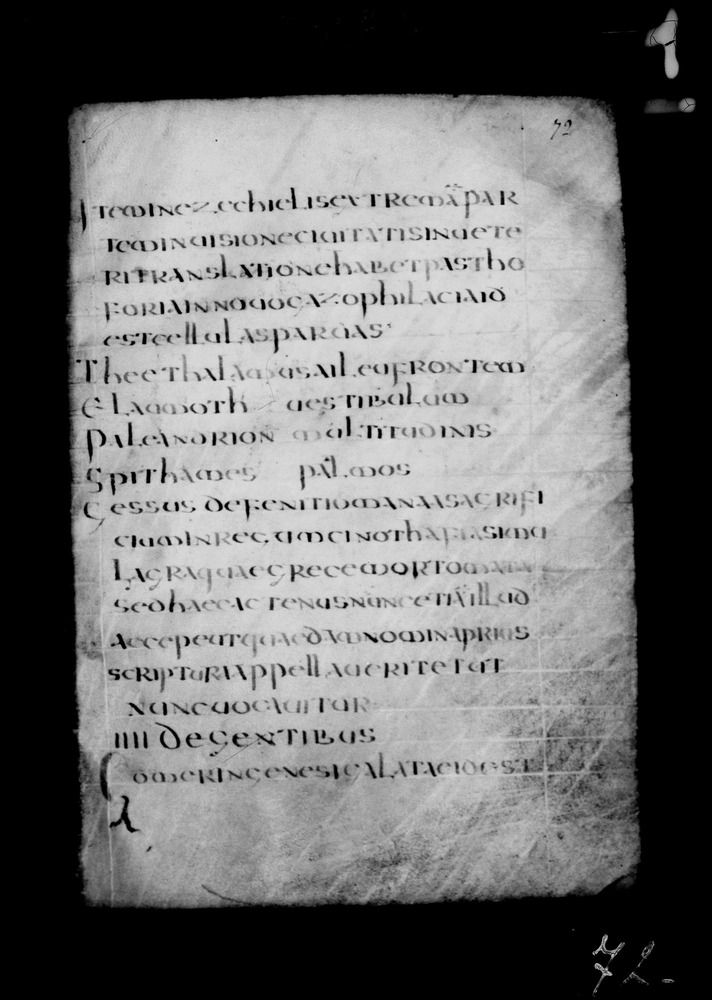 72
ITEMINEZECHIELISEXTREMAPAR
TEMINUISIONECIUITATISINUETE
RITRANSLATIONEHABETPASTHO
FORIAINNOUOGAZOPHILACIAID
ESTCELLULASPARUAS
THEETHALAMUSAILEUFRONTEM
ELAMMOTH UESTIBULUM
PALEANDRION MULTITUDINIS
SPITHAMES PALMOS
GESSUSDEFENITIOMANAASACRIFI
CIUMINREGUMCINOTHAFFASIMU
LACRAQUAEGRECEMORTOMATA
SEDHAECACTENUSNUNCETIAILLUD
ACCEPEUTQUAEDAMNOMINAPRIUS
SCRIPTURAAPPELLAUERITETUT
NUNCUOCAUITUR
IIII DEGENTIBUS
GOMERINGENESIGALATAEIDEST
72.